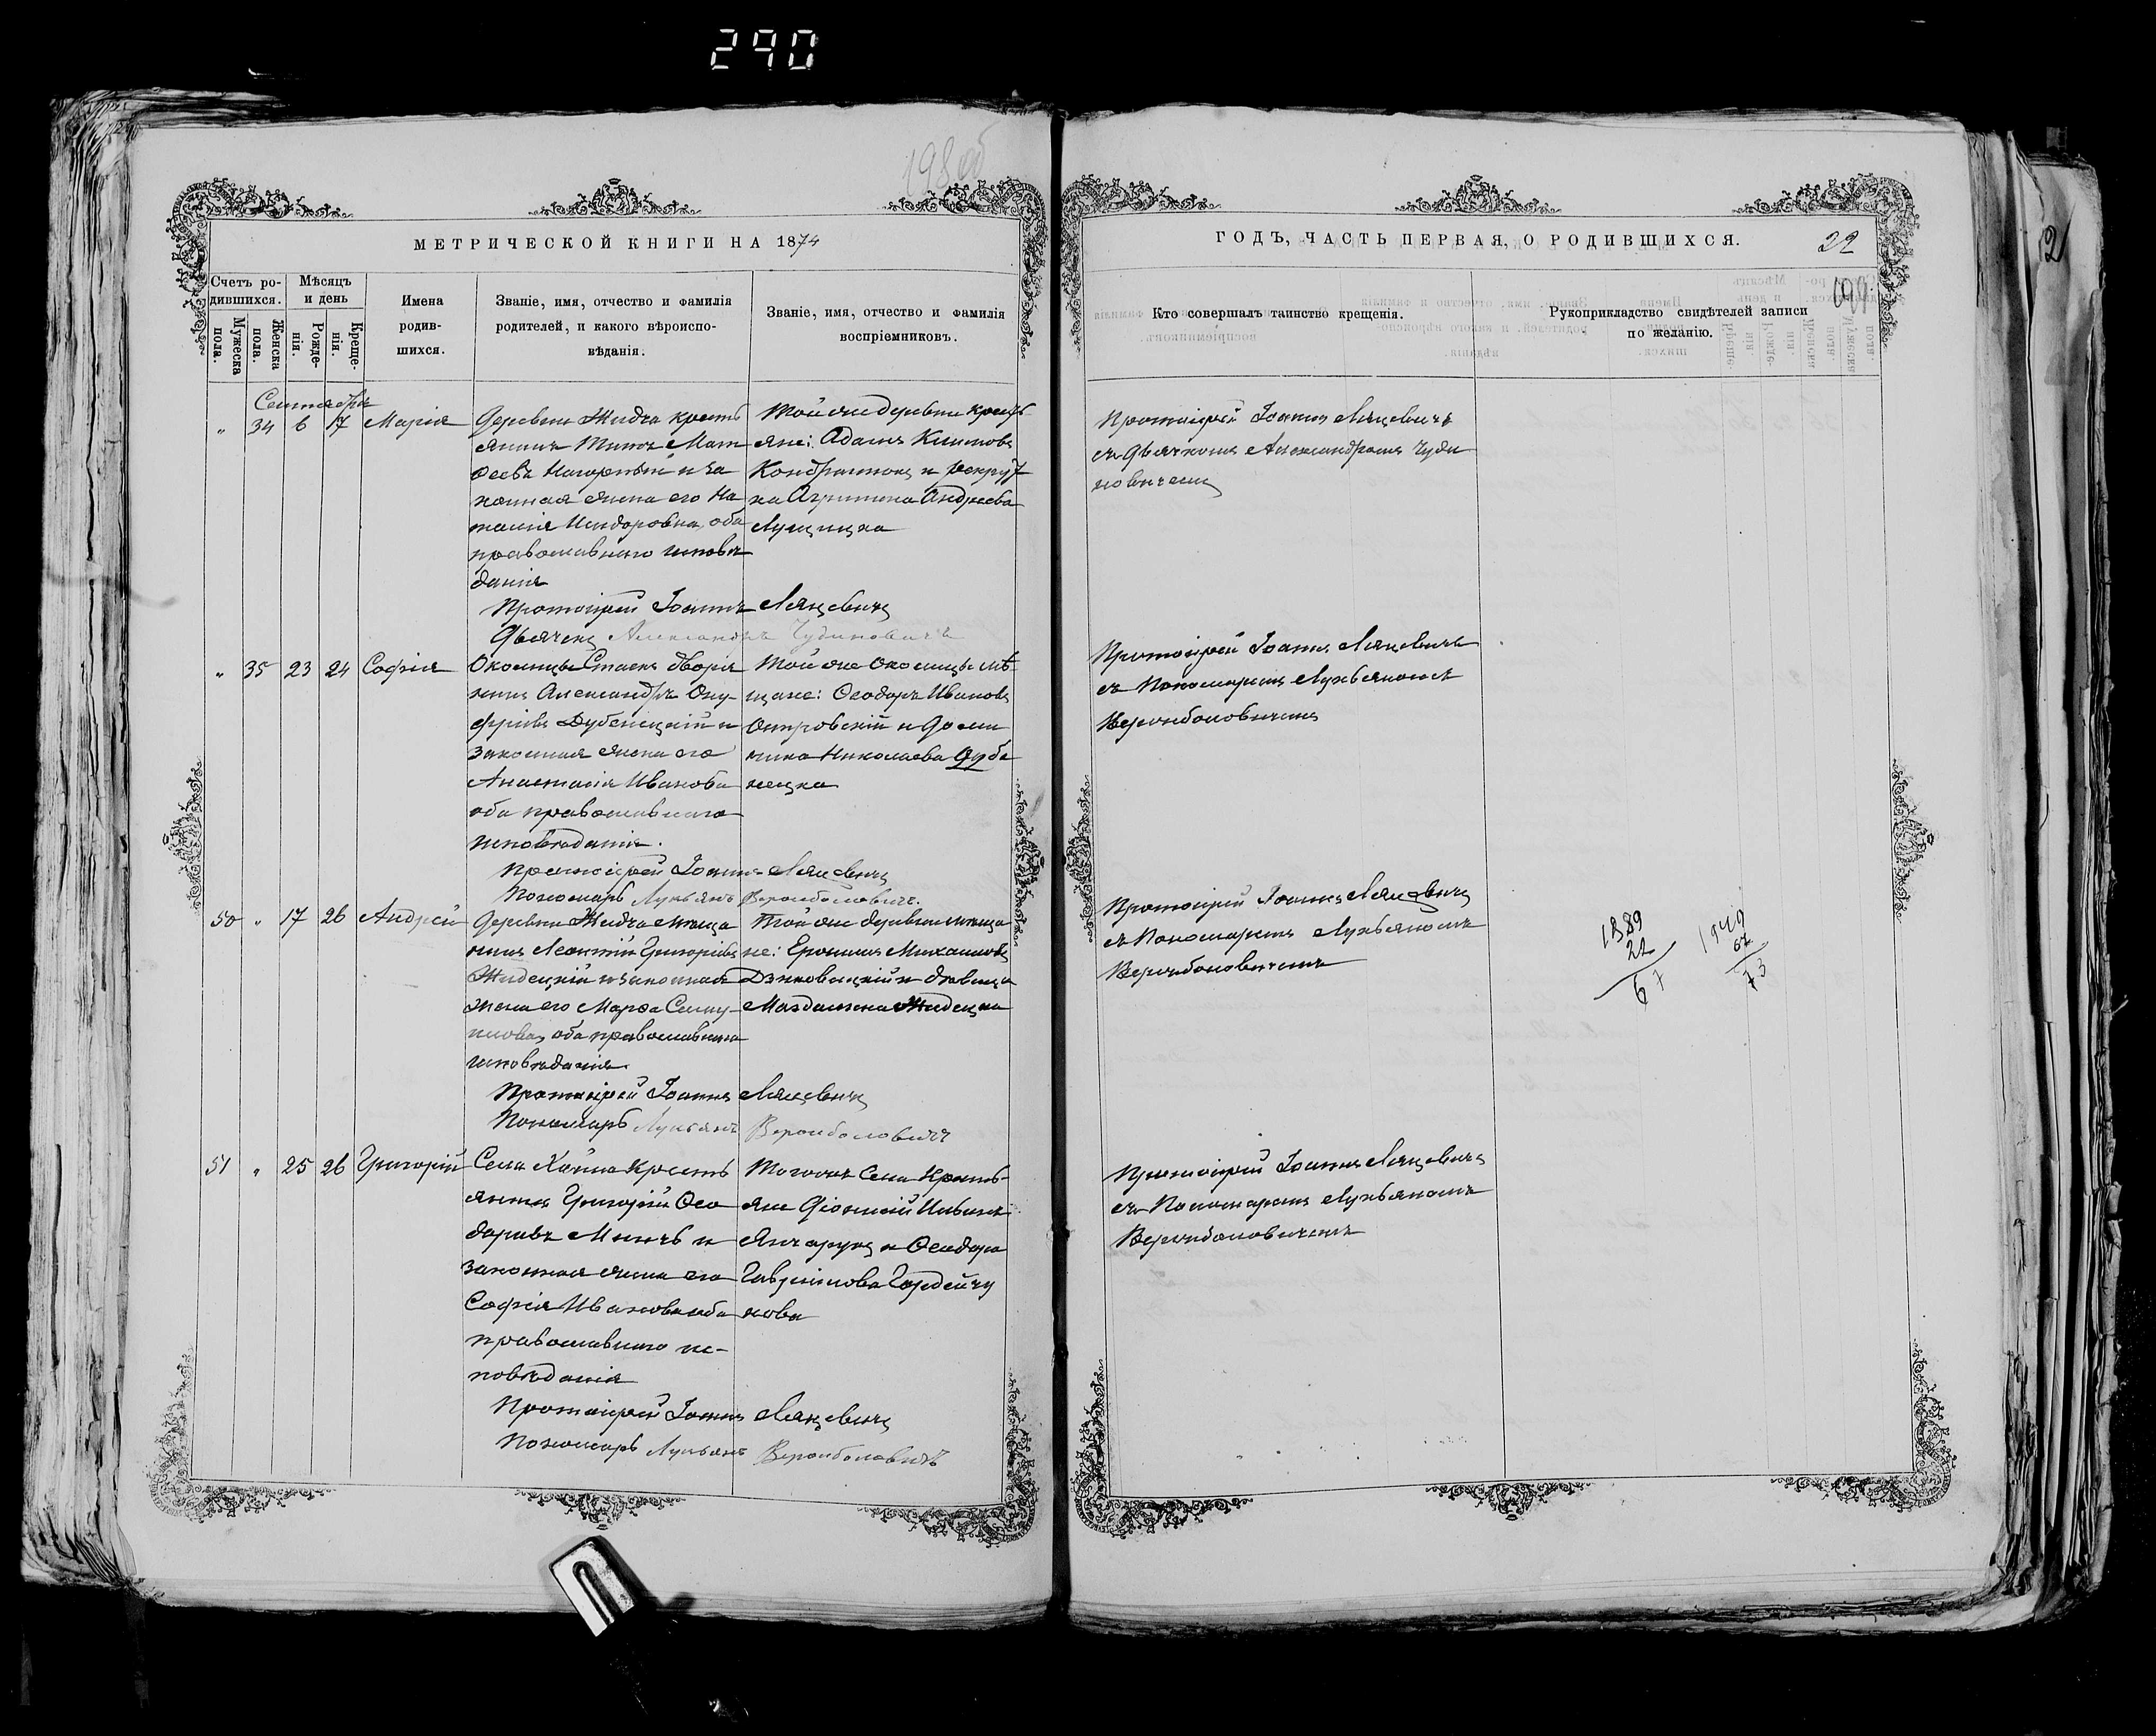 290
198 об
МЕТРИЧЕСКОЙ КНИГИ НА 1874
Счетъ ро-
дившихся.
Мужеска
пола.
Женска
пола.
Мѣсяцъ
и день
Рожде-
нія.
Креще-
нія.
Имена
родив-
шихся.
Званіе, имя, отчество и фамилія
родителей, и какого вѣроиспо-
вѣданія.
Званіе, имя, отчество и фамилія
воспріемниковъ.
Сентябрь
„ 34 6 17 Марія
Деревни Жидча кресть
янинъ Титъ Мат
ѳеевъ и за
конная жена его На
талія Исидоровна, оба
православнаго исповѣ
данія
Той же деревни кресть
яне: Адамъ Климовъ
и рекрут
ка Агрипина Андреева
Протоіерей Іоаннъ Ляцевичъ
Дьячекъ Александръ Чудиновичъ
„ 35 23 24 Софія
Околицы Стаекъ дворя
нинъ Александръ Ону-
фріевъ Дубенецкій и
законная жена его
Анастасія Иванова
оба православнаго
исповѣданія.
Той же околицы мѣ
щане: Ѳеодоръ Ивановъ
Островскій и Доми
ника Николаева Дубе
нецка
Протоіерей Іоаннъ Ляцевичъ
Пономарь Лукьянъ Вержболовичъ.
50 „ 17 26 Андрей
Деревни Жидча мѣща
нинъ Леонтій Григоріевъ
Жидецкій и законная
жена его Марѳа Саму-
илова, оба православнаго
исповѣданія.
Той же деревни мѣща
не: Еронимъ Михаиловъ
Дзиковицкій и дѣвица
Магдалена Жидецка
Протоіерей Іоаннъ Ляцевичъ
Пономарь Лукьянъ Вержболовичъ
51 „ 25 26 Григорій
Села Хойна кресть
янинъ Григорій Ѳео
доровъ Минчъ и
законная жена его
Софія Иванова оба
православнаго ис-
повѣданія
Тогоже села кресть-
яне Діонисій Ильинъ
Янчарукъ и Ѳеодора
Гавріилова Гордейчу
кова
Протоіерей Іоаннъ Ляцевичъ
Пономарь Лукьянъ Вержболовичъ
ГОДЪ, ЧАСТЬ ПЕРВАЯ, О РОДИВШИХСЯ.
22
Кто совершалъ таинство крещенія.
Рукоприкладство свидѣтелей записи
по желанію.
Протоіерей Іоаннъ Ляцевичъ
съ Дьячкомъ Александромъ Чуди
новичемъ
Протоіерей Іоаннъ Ляцевичъ
съ Пономаремъ Лукьяномъ
Вержболовичемъ
Протоіерей Іоаннъ Ляцевичъ
съ Пономаремъ Лукьяномъ
Вержболовичемъ
1889
22
67
1949
67
73
Протоіерей Іоаннъ Ляцевичъ
съ Пономаремъ Лукьяномъ
Вержболовичемъ
2